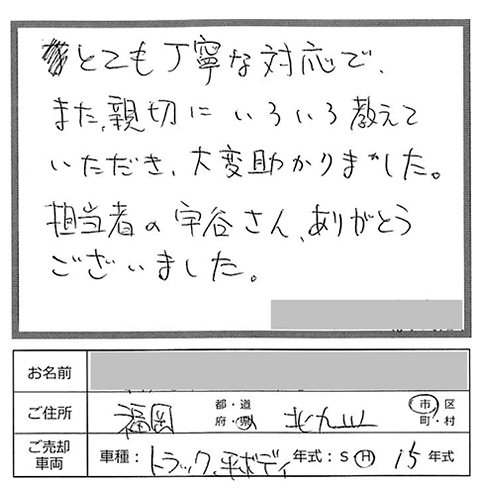 とても丁寧な対応で、
また、親切にいろいろ教えて
いただき、大変助かりました。
担当者の宇谷さん、ありがとう
ございました。
お名前
ご住所 福岡 都・道 府・県 北九州 市・区 町・村
ご売却車両 車種：トラック、平ボディ 年式：S・H 15 年式